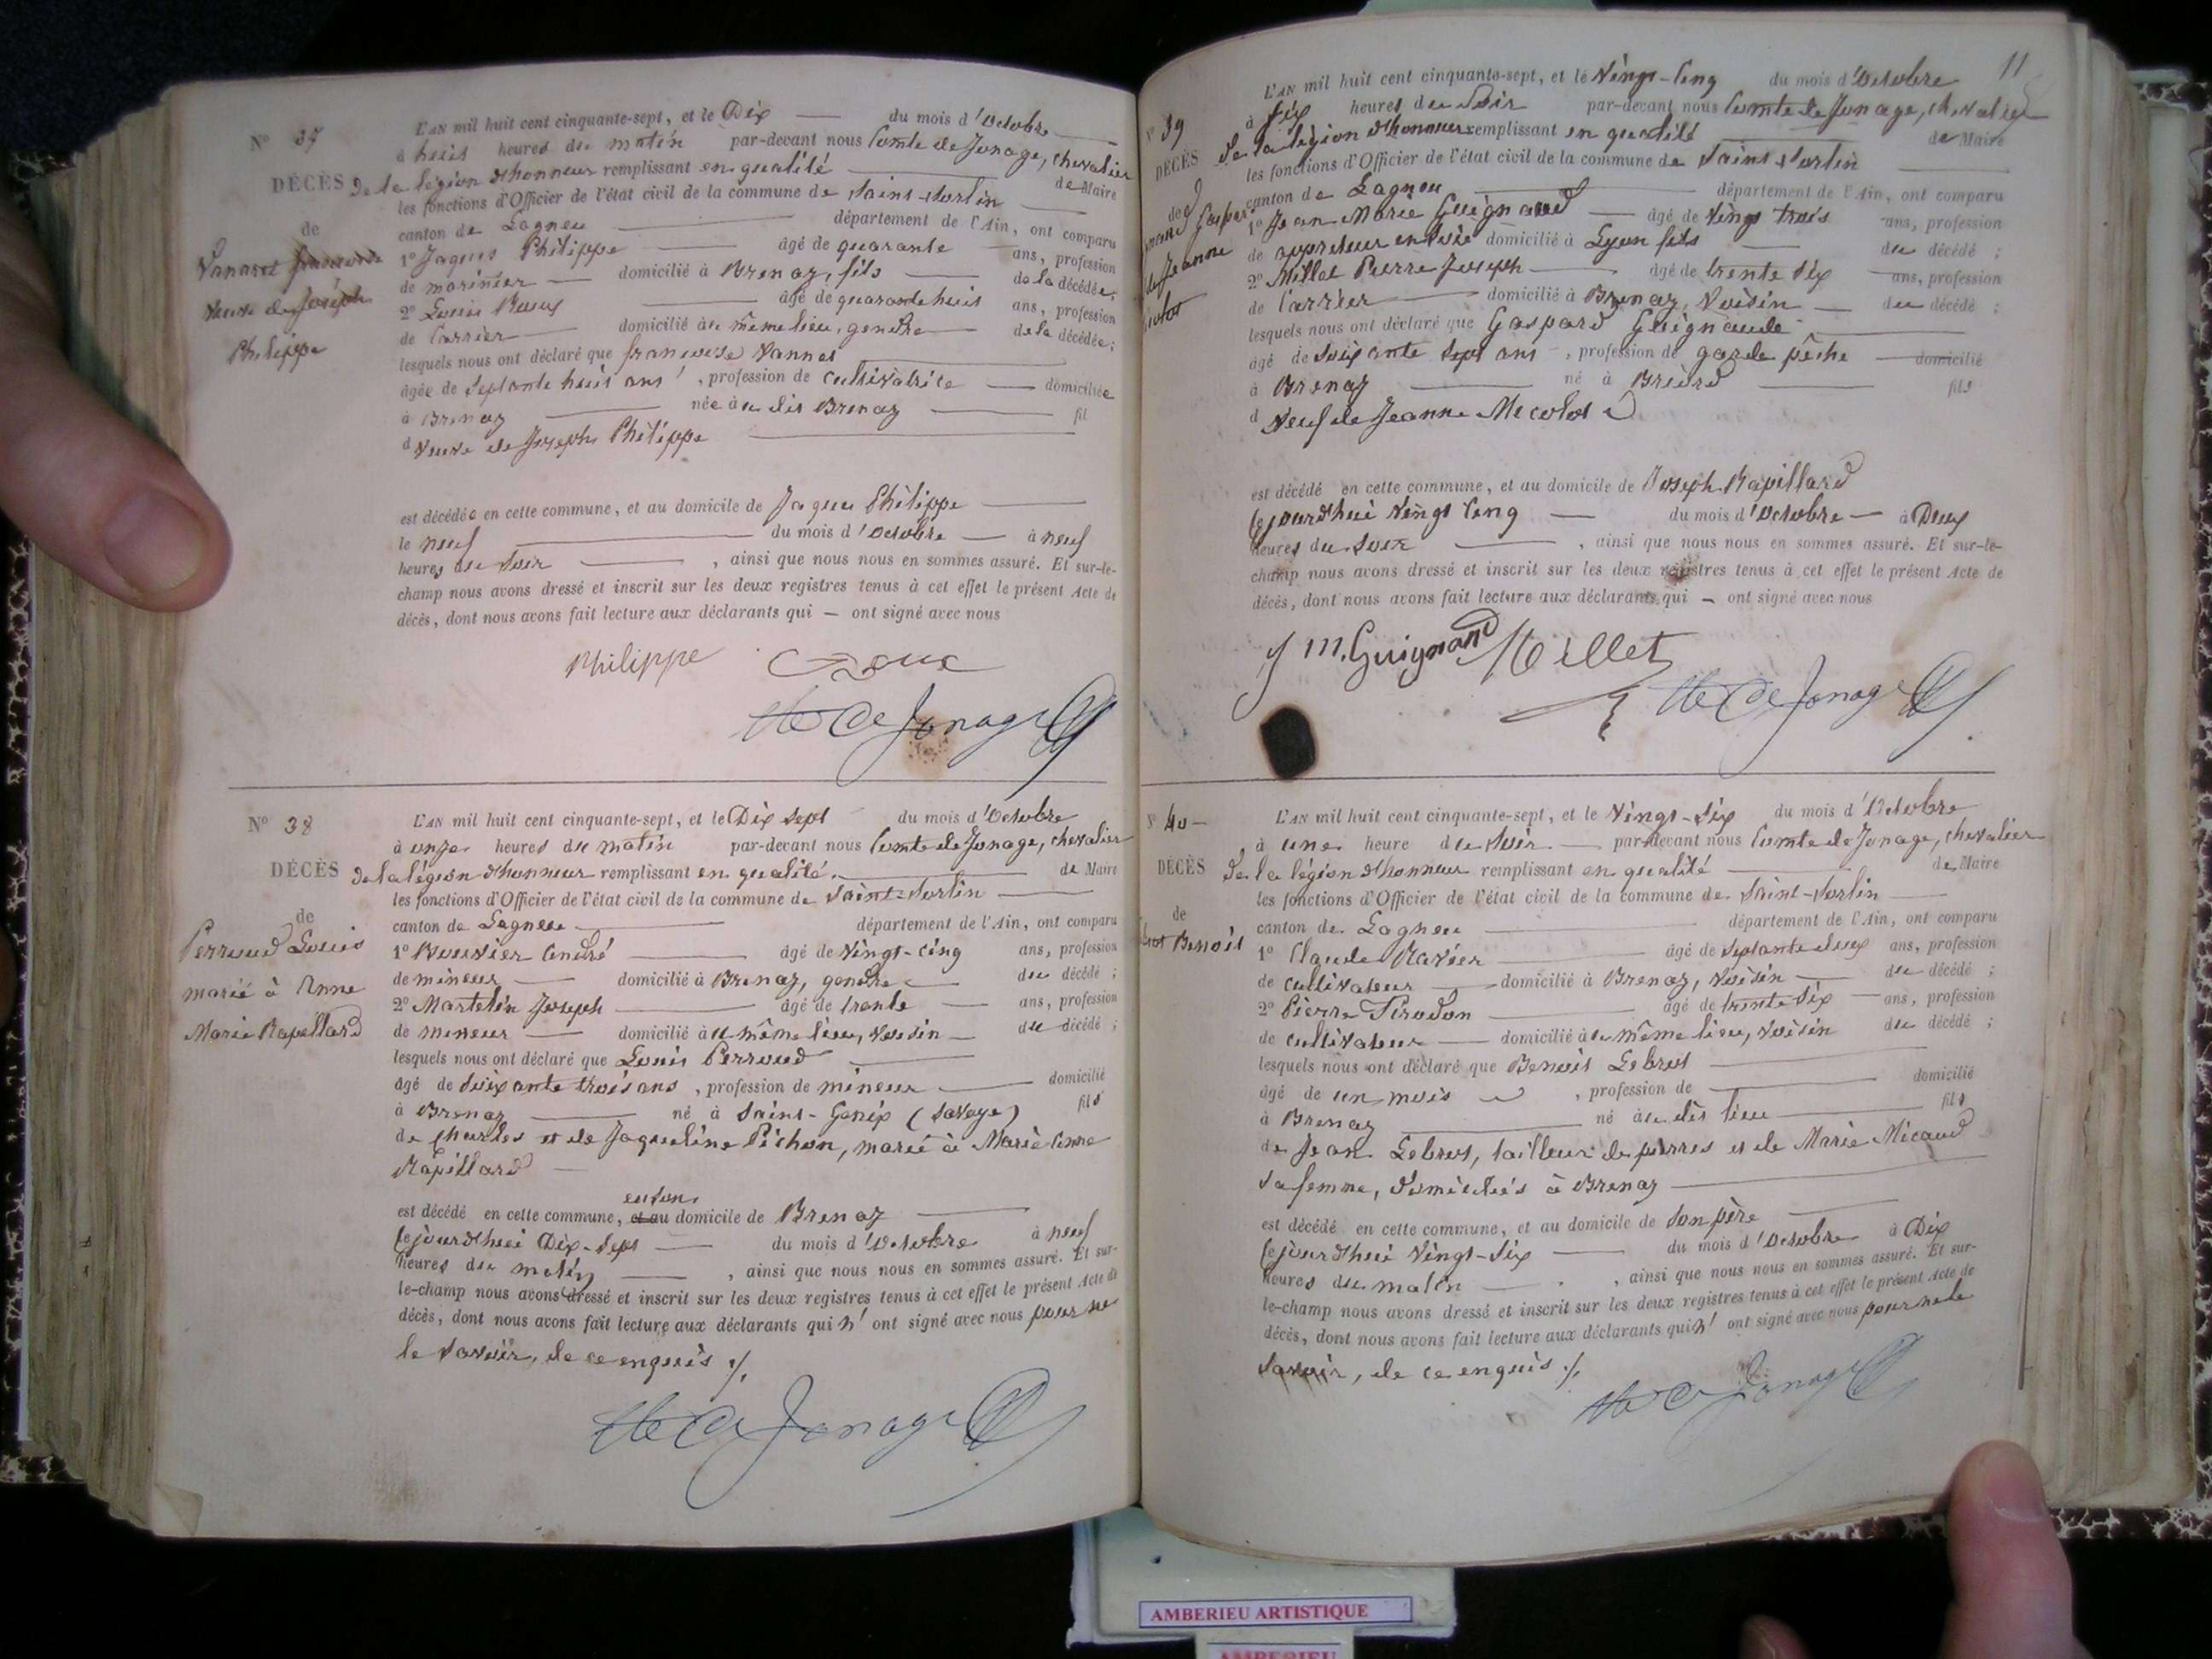 N° 37
DÉCÈS
de
Vanaret françoise
veuve de Joseph
Philippe
L'AN mil huit cent cinquante-sept, et le Dix du mois d'Octobre
à huit heures du matin par-devant nous Comte de Jonage, chevalier
de la légion d'honneur remplissant en qualité de Maire
les fonctions d'Officier de l'état civil de la commune de Saint-Sorlin
canton de Lagneu département de l'Ain, ont comparu
1° Jaques Philippe âgé de quarante ans, profession
de marinier domicilié à Brenaz, fils de la décédée;
2° Louis Roux âgé de quarante huit ans, profession
de Carrier domicilié au même lieu, gendre de la décédée;
lesquels nous ont déclaré que françoise Vannet
âgée de Septante huit ans, profession de cultivatrice domiciliée
à Brenaz née au dit Brenaz fil
d Veuve de Joseph Philippe
est décédée en cette commune, et au domicile de Jaques Philippe
le neuf du mois d'Octobre à neuf
heures du Soir, ainsi que nous nous en sommes assuré. Et sur-le-
champ nous avons dressé et inscrit sur les deux registres tenus à cet effet le présent Acte de
décès, dont nous avons fait lecture aux déclarants qui — ont signé avec nous
Philippe Roux
Cte De Jonage
N° 38
DÉCÈS
de
Perroud Louis
marié à Anne
Marie Rapillard
L'AN mil huit cent cinquante-sept, et le Dix Sept du mois d'Octobre
à onze heures du matin par-devant nous Comte de Jonage, chevalier
de la légion d'honneur remplissant en qualité de Maire
les fonctions d'Officier de l'état civil de la commune de Saint-Sorlin
canton de Lagneu département de l'Ain, ont comparu
1° Bouvier André âgé de Vingt-cinq ans, profession
de mineur domicilié à Brenaz, gendre du décédé;
2° Martelin Joseph âgé de trente ans, profession
de mineur domicilié au même lieu, Voisin du décédé;
lesquels nous ont déclaré que Louis Perroud
âgé de Soixante trois ans, profession de mineur domicilié
à Brenaz né à Saint-Genix (Savoye) fils
de Charles et de Jaqueline Pichon, marié à Marie Anne
Rapillard
en son
est décédé en cette commune, et au domicile de Brenaz
Cejourd'hui Dix-Sept du mois d'Octobre à neuf
heures du matin, ainsi que nous nous en sommes assuré. Et sur-
le-champ nous avons dressé et inscrit sur les deux registres tenus à cet effet le présent Acte de
décès, dont nous avons fait lecture aux déclarants qui n'ont signé avec nous pour ne
le Savoir, de ce enquis ./.
Cte De Jonage
11
N° 39
DÉCÈS
de
Gaspar
Jeanne
L'AN mil huit cent cinquante-sept, et le Vingt-Cinq du mois d'Octobre
à Six heures du Soir par-devant nous Comte de Jonage, chevalier
de la légion d'honneur remplissant en qualité de Maire
les fonctions d'Officier de l'état civil de la commune de Saint Sorlin
canton de Lagneu département de l'Ain, ont comparu
1° Jean Marie Guignard âgé de Vingt trois ans, profession
de appreteur en Soie domicilié à Lyon fils du décédé;
2° Millet Pierre Joseph âgé de trente Six ans, profession
de Carrier domicilié à Brenaz, Voisin du décédé;
lesquels nous ont déclaré que Gaspard Guignaude
âgé de Soixante Sept ans, profession de garde pêche domicilié
à Brenaz né à Briord fils
d Veuf de Jeanne Mecolot
est décédé en cette commune, et au domicile de Joseph Rapillard
Cejourd'hui Vingt Cinq du mois d'Octobre à Deux
heures du Soir, ainsi que nous nous en sommes assuré. Et sur-le-
champ nous avons dressé et inscrit sur les deux registres tenus à cet effet le présent Acte de
décès, dont nous avons fait lecture aux déclarants qui — ont signé avec nous
J M. Guignard Millet
Cte De Jonage
N° 40
DÉCÈS
de
Benoit
L'AN mil huit cent cinquante-sept, et le Vingt-Six du mois d'Octobre
à une heure du Soir par-devant nous Comte de Jonage, chevalier
de la légion d'honneur remplissant en qualité de Maire
les fonctions d'Officier de l'état civil de la commune de Saint-Sorlin
canton de Lagneu département de l'Ain, ont comparu
1° Claude Ravier âgé de Septante deux ans, profession
de cultivateur domicilié à Brenaz, Voisin du décédé;
2° Pierre Tirodon âgé de trente Six ans, profession
de cultivateur domicilié au même lieu, Voisin du décédé;
lesquels nous ont déclaré que Benoit Lebrot
âgé de un mois, profession de domicilié
à Brenaz né au dit lieu fils
de Jean Lebrot, tailleur de pierres et de Marie Micaud
Sa femme, domiciliés à Brenaz
est décédé en cette commune, et au domicile de Son père
Cejourd'hui Vingt-Six du mois d'Octobre à Dix
heures du matin, ainsi que nous nous en sommes assuré. Et sur-
le-champ nous avons dressé et inscrit sur les deux registres tenus à cet effet le présent Acte de
décès, dont nous avons fait lecture aux déclarants qui n'ont signé avec nous pour ne le
Savoir, de ce enquis ./.
Cte De Jonage
AMBERIEU ARTISTIQUE
AMBERIEU